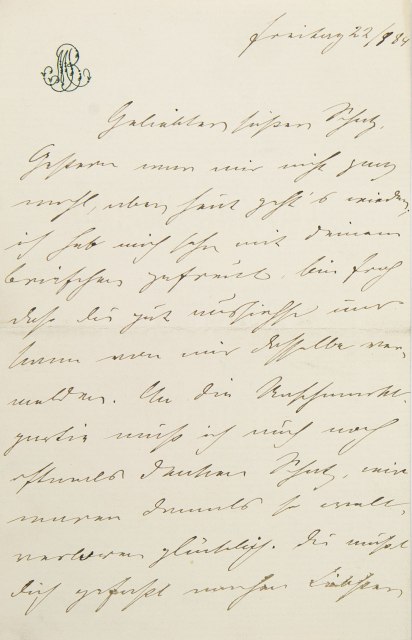 Freitag 22/8 84
Geliebter süßer Schatz,
Gestern war mir nicht ganz
wohl, aber heut geht's wieder,
ich hab mich sehr mit deinem
briefchen gefreut, bin froh
dass du gut aussiehst und
kann von mir dasselbe ver-
melden. An die
partie muß ich auch noch
oftmals denken Schatz, wir
waren damals so welt-
verloren glücklich. Du mußt
dich gefaßt machen Liebster